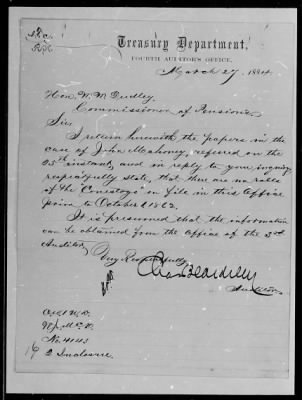 Treasury Department,
FOURTH AUDITOR'S OFFICE,
March 27, 1884.
Hon. W. W. Dudley,
Commissioner of Pensions,
Sir:
I return herewith the papers in the
case of John Mahoney, referred on the
25th instant, and in reply to your inquiry
respectfully state, that there are no rolls
of the "Conestoga" on file in this Office
prior to October 1862.
It is presumed that the information
can be obtained from the Office of the 3rd
Auditor.
Very Respectfully,
Chas Beardsley
Auditor.
No. 4143
2 Inclosure.
16